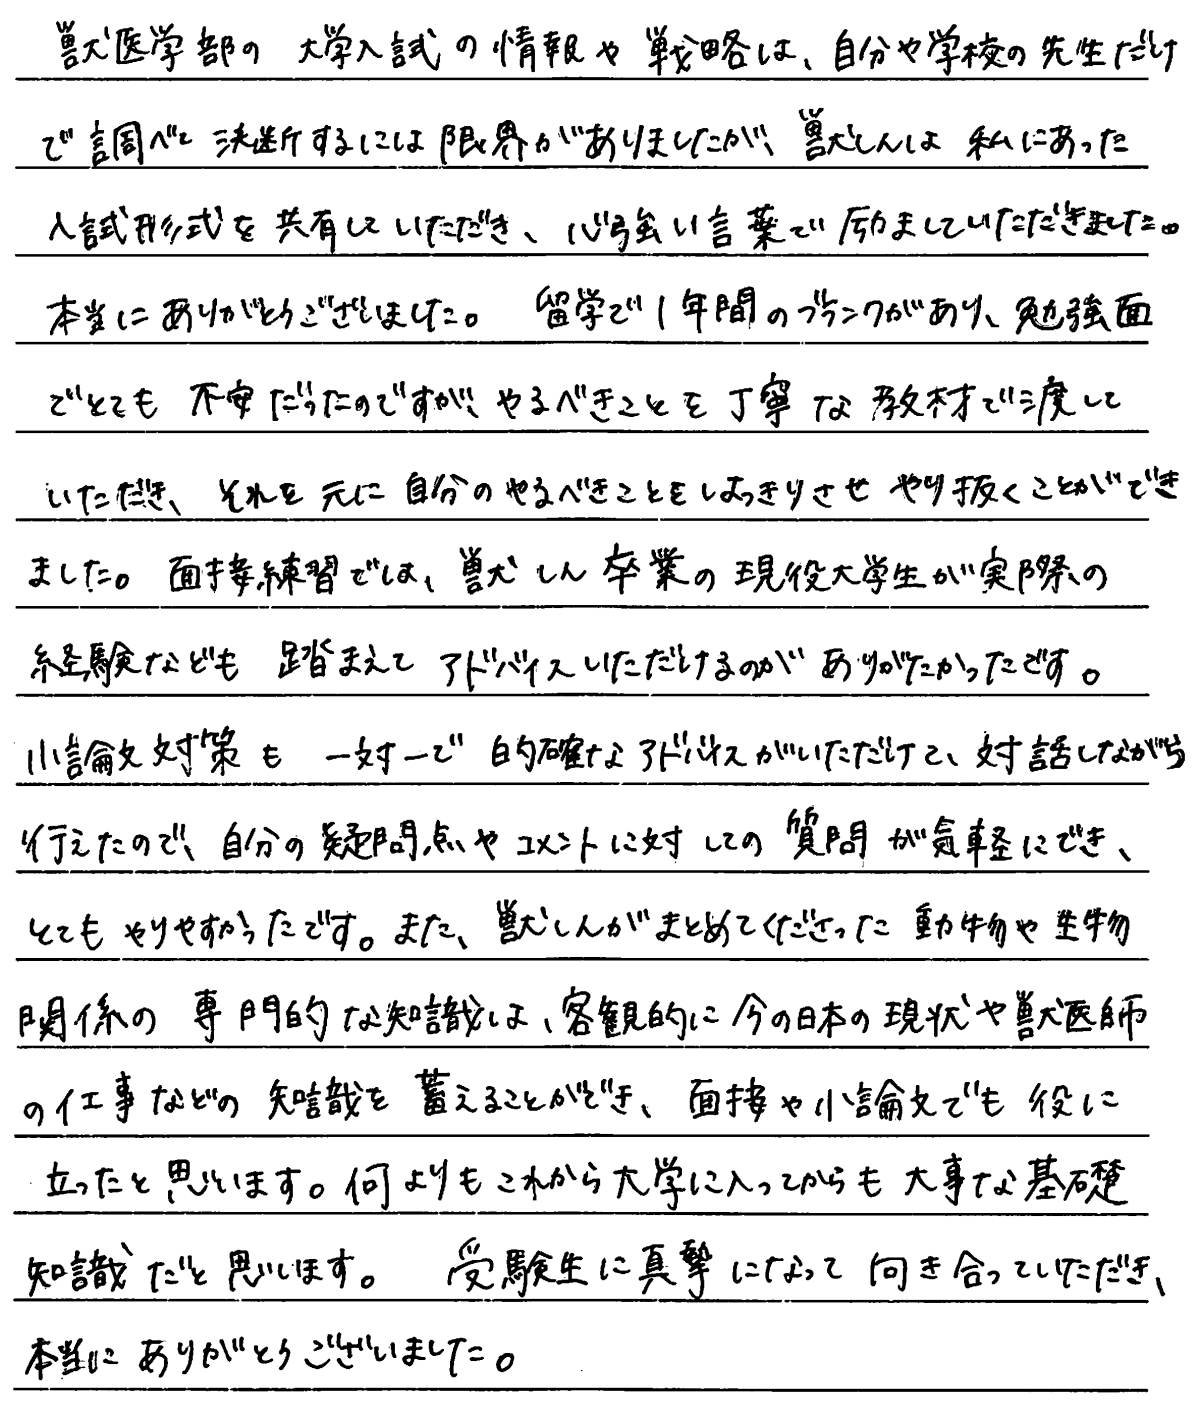 獣医学部の大学入試の情報や戦略は、自分や学校の先生だけ
で調べて決断するには限界がありましたが、獣しんは私にあった
入試形式を共有していただき、心強い言葉で励ましていただきました。
本当にありがとうございました。留学で1年間のブランクがあり、勉強面
でとても不安だったのですが、やるべきことを丁寧な教材で渡して
いただき、それを元に自分のやるべきことをはっきりさせやり抜くことができ
ました。面接練習では、獣しん卒業の現役大学生が実際の
経験なども踏まえてアドバイスいただけるのがありがたかったです。
小論文対策も一対一で的確なアドバイスがいただけて、対話しながら
行えたので、自分の疑問点やコメントに対しての質問が気軽にでき、
とてもやりやすかったです。また、獣しんがまとめてくださった動物や生物
関係の専門的な知識は、客観的に今の日本の現状や獣医師
の仕事などの知識を蓄えることができ、面接や小論文でも役に
立ったと思います。何よりもこれから大学に入ってからも大事な基礎
知識だと思います。受験生に真摯になって向き合っていただき、
本当にありがとうございました。